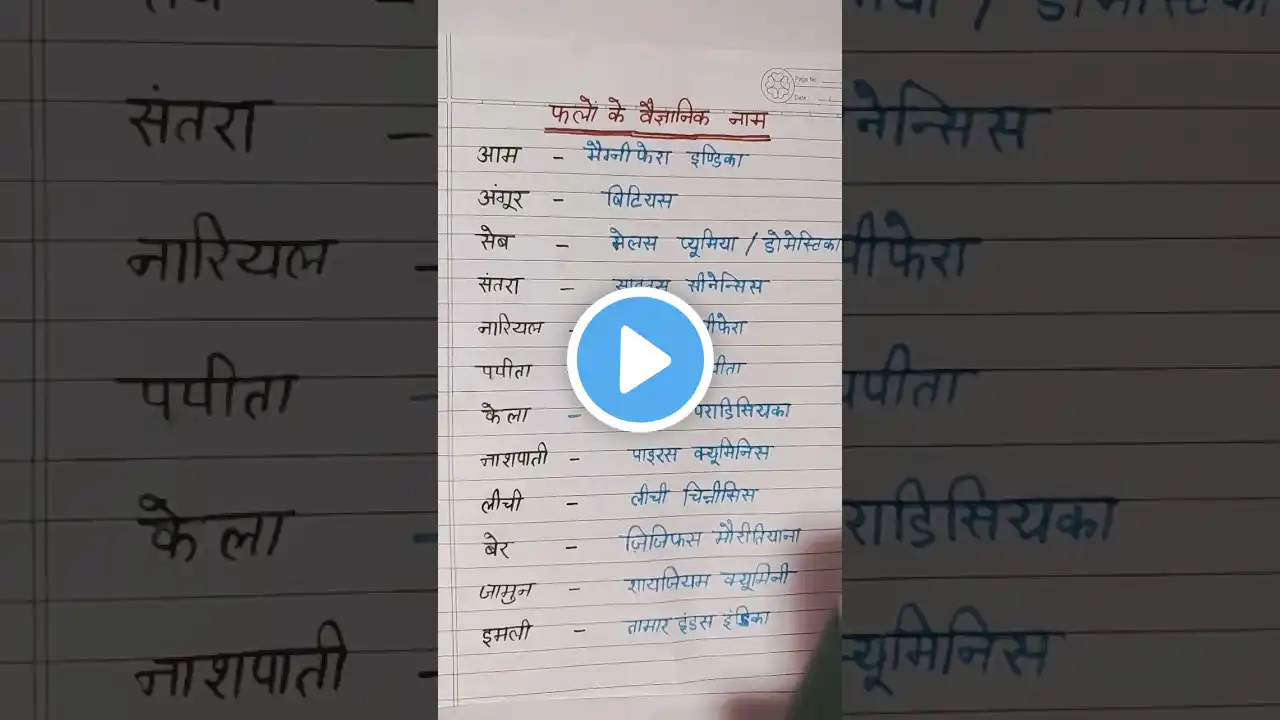 Page No.
Date :
फलों के वैज्ञानिक नाम
आम - मैग्नीफेरा इण्डिका
अंगूर - बिटियस
सेब - मेलस प्यूमिया / डोमेस्टिका
संतरा - सीनेन्सिस
नारियल -
पपीता
केला - पराडिसियका
नाशपाती - पाइरस क्यूमिनिस
लीची - लीची चिन्नीसिस
बेर - ज़िजिफस मौरीतियाना
जामुन - शायजियम क्यूमिनी
इमली - तामार इंडस इंडिका
संतरा -
नारियल -
पपीता -
केला -
नाशपाती -